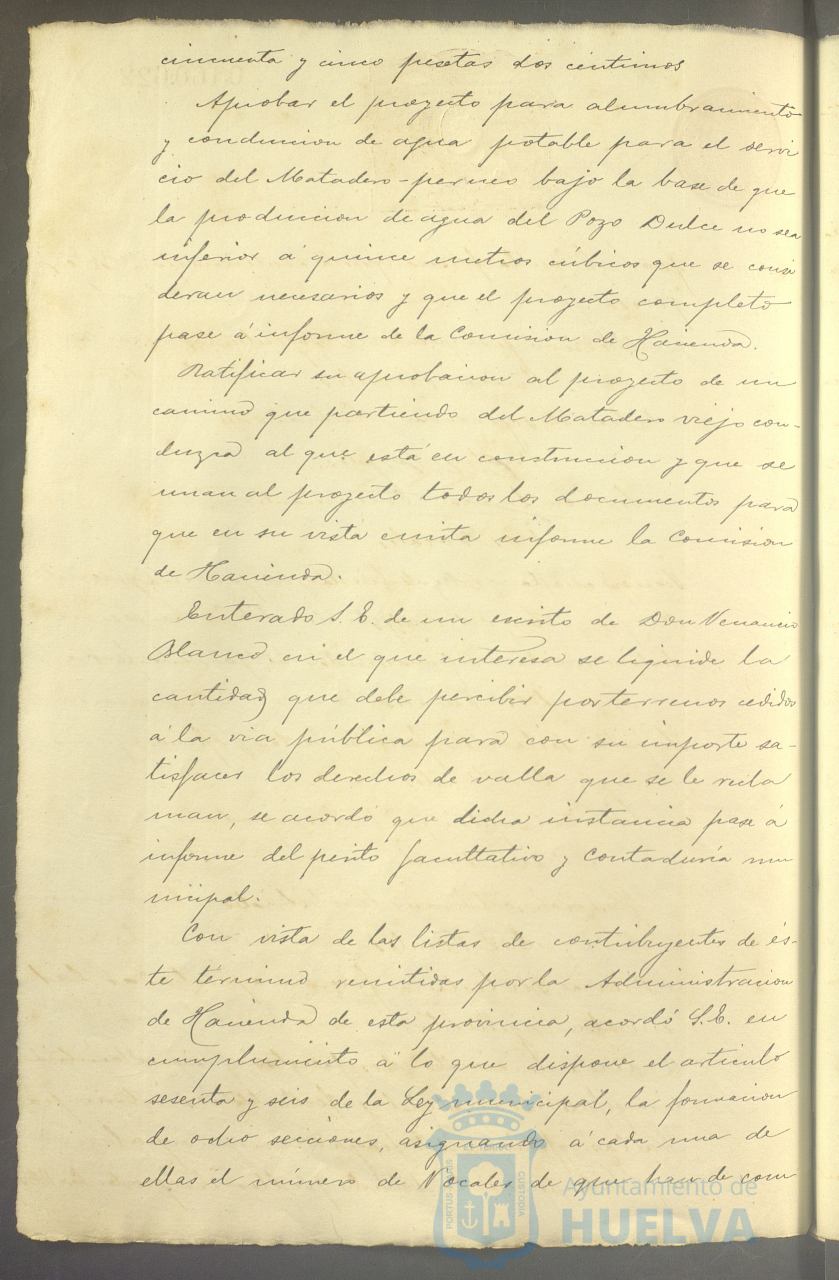 cincuenta y cinco pesetas dos céntimos
Aprobar el proyecto para alumbramiento
y conduccion de agua potable para el servi
cio del Matadero-perneo bajo la base de que
la produccion de agua del Pozo Dulce no sea
inferior á quince metros cúbicos que se consi
deran necesarios y que el proyecto completo
pase á informe de la Comision de Hacienda.
Ratificar su aprobacion al proyecto de un
camino que partiendo del Matadero viejo con-
duzca al que está en construccion y que se
unan al proyecto todos los documentos para
que en su vista emita informe la Comision
de Hacienda.
Enterado S. E. de un escrito de Don Venancio
Blanco en el que interesa se liquide la
cantidad que debe percibir por terrenos cedidos
á la via pública para con su importe sa-
tisfacer los derechos de valla que se le recla
man, se acordó que dicha instancia pase á
informe del perito facultativo y Contaduría mu
nicipal.
Con vista de las listas de contribuyentes de és-
te término remitidas por la Administracion
de Hacienda de esta provincia, acordó S.E. en
cumplimiento á lo que dispone el artículo
sesenta y seis de la Ley municipal, la formacion
de ocho secciones, asignando á cada una de
ellas el número de Vocales de que han de com
PORTUS MARIS
ET TERRAE
CUSTODIA
Ayuntamiento de
HUELVA